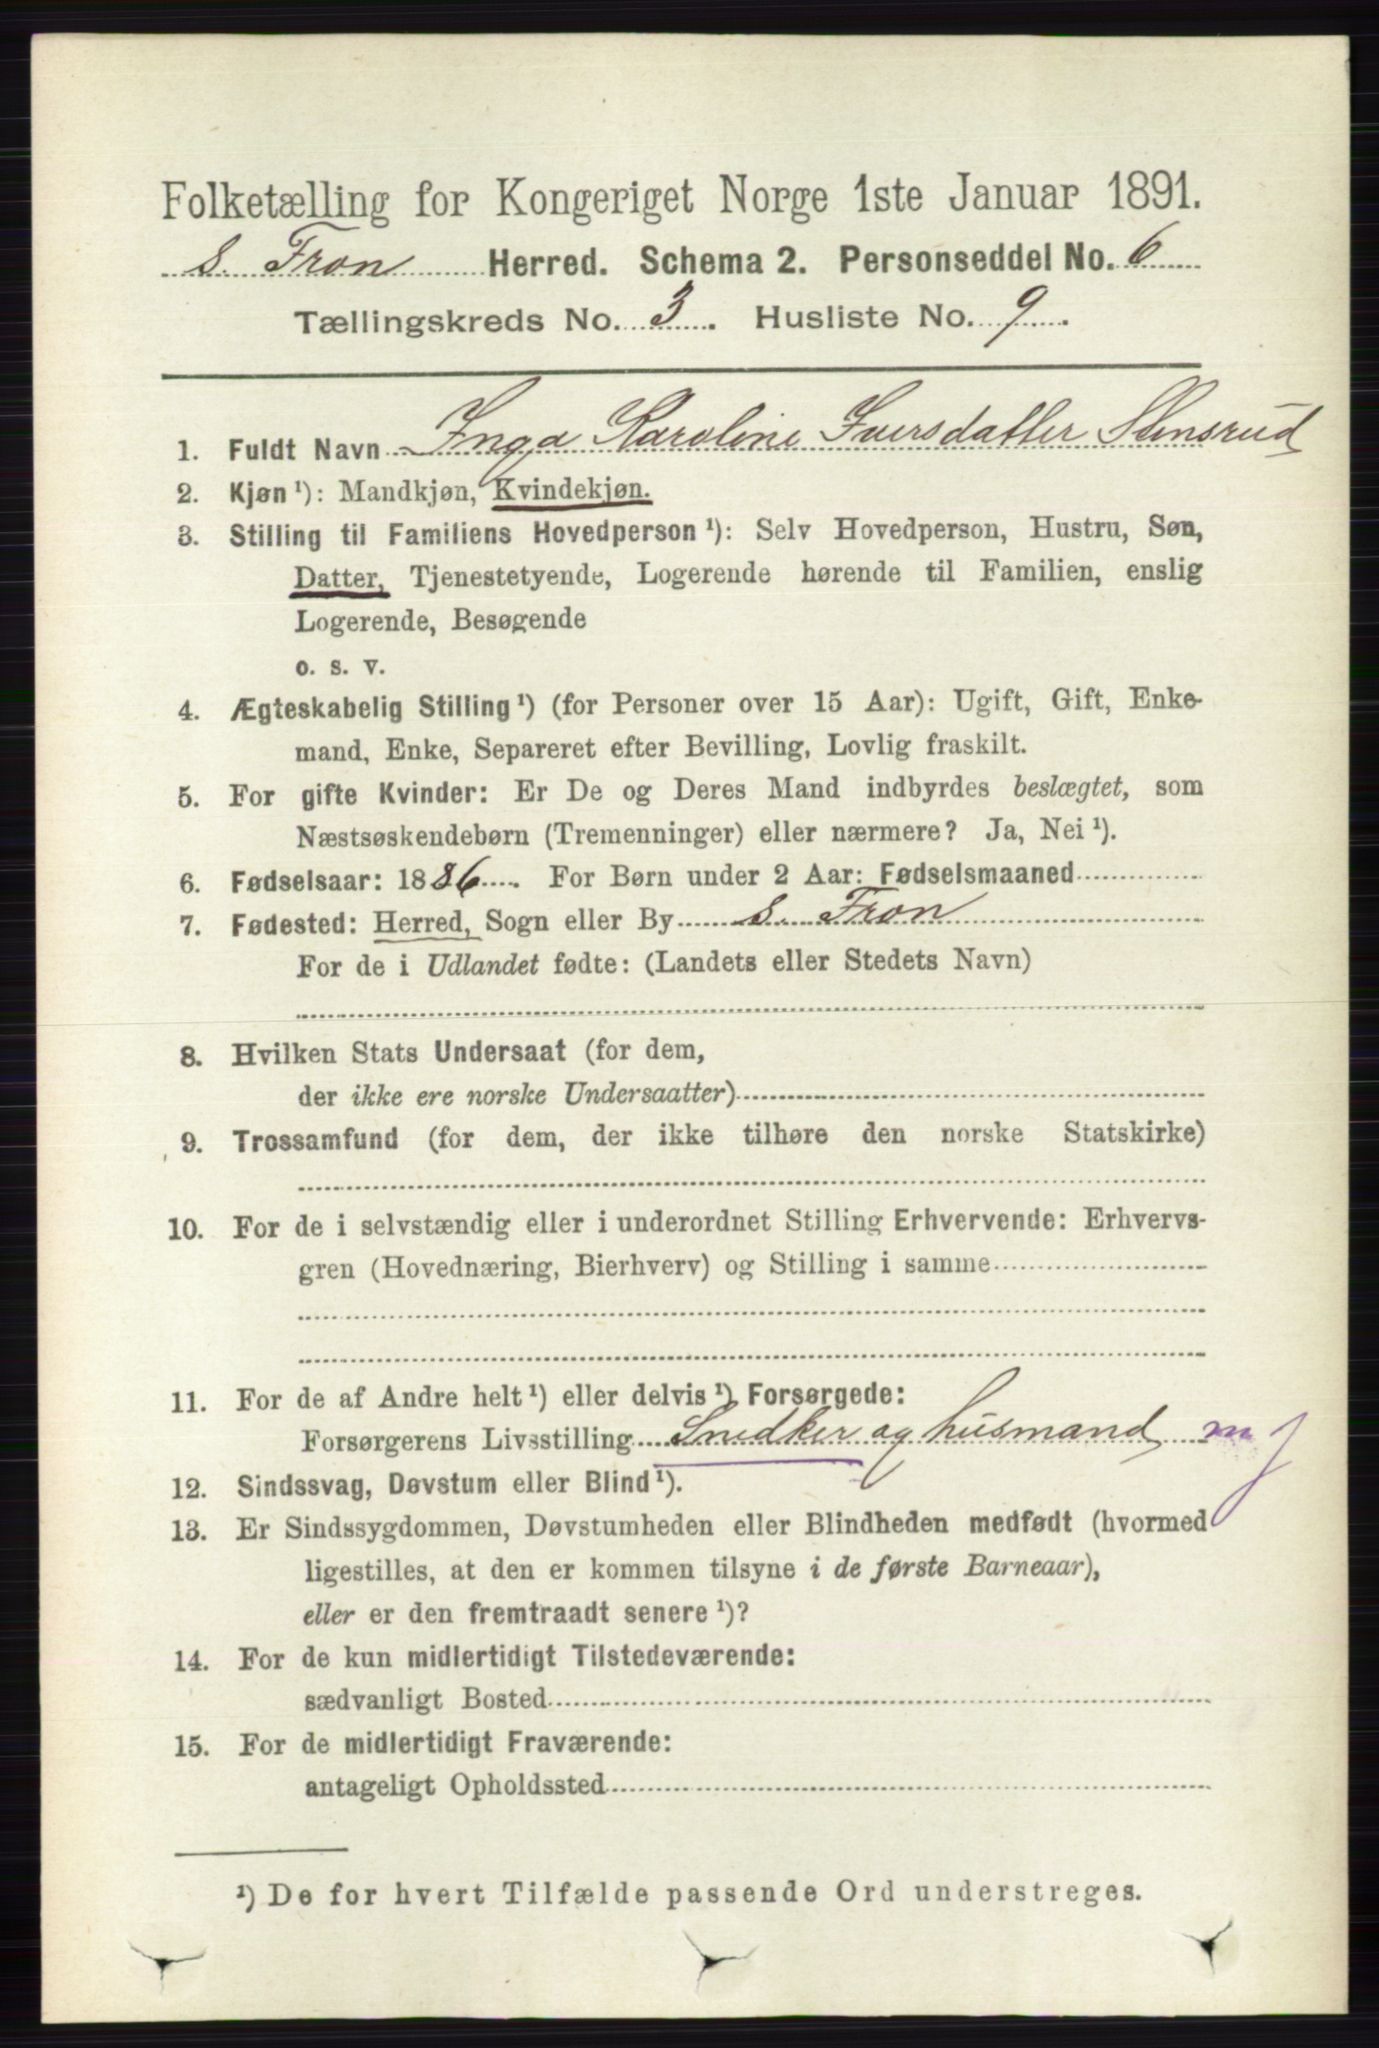 Folketælling for Kongeriget Norge 1ste Januar 1891.
S. Fron Herred. Schema 2. Personseddel No. 6
Tællingskreds No. 3. Husliste No. 9.
1. Fuldt Navn Inga Karoline Iversdatter Stensrud
2. Kjøn ¹): Mandkjøn, Kvindekjøn.
3. Stilling til Familiens Hovedperson ¹): Selv Hovedperson, Hustru, Søn,
Datter, Tjenestetyende, Logerende hørende til Familien, enslig
Logerende, Besøgende
o. s. v.
4. Ægteskabelig Stilling ¹) (for Personer over 15 Aar): Ugift, Gift, Enke-
mand, Enke, Separeret efter Bevilling, Lovlig fraskilt.
5. For gifte Kvinder: Er De og Deres Mand indbyrdes beslægtet, som
Næstsøskendebørn (Tremenninger) eller nærmere? Ja, Nei ¹).
6. Fødselsaar: 1886. For Børn under 2 Aar: Fødselsmaaned
7. Fødested: Herred, Sogn eller By S. Fron
For de i Udlandet fødte: (Landets eller Stedets Navn)
8. Hvilken Stats Undersaat (for dem,
der ikke ere norske Undersaatter)
9. Trossamfund (for dem, der ikke tilhøre den norske Statskirke)
10. For de i selvstændig eller i underordnet Stilling Erhvervende: Erhvervs-
gren (Hovednæring, Bierhverv) og Stilling i samme
11. For de af Andre helt ¹) eller delvis ¹) Forsørgede:
Forsørgerens Livsstilling Snedker og husmand
12. Sindssvag, Døvstum eller Blind ¹).
13. Er Sindssygdommen, Døvstumheden eller Blindheden medfødt (hvormed
ligestilles, at den er kommen tilsyne i de første Barneaar),
eller er den fremtraadt senere ¹)?
14. For de kun midlertidigt Tilstedeværende:
sædvanligt Bosted
15. For de midlertidigt Fraværende:
antageligt Opholdssted
¹) De for hvert Tilfælde passende Ord understreges.